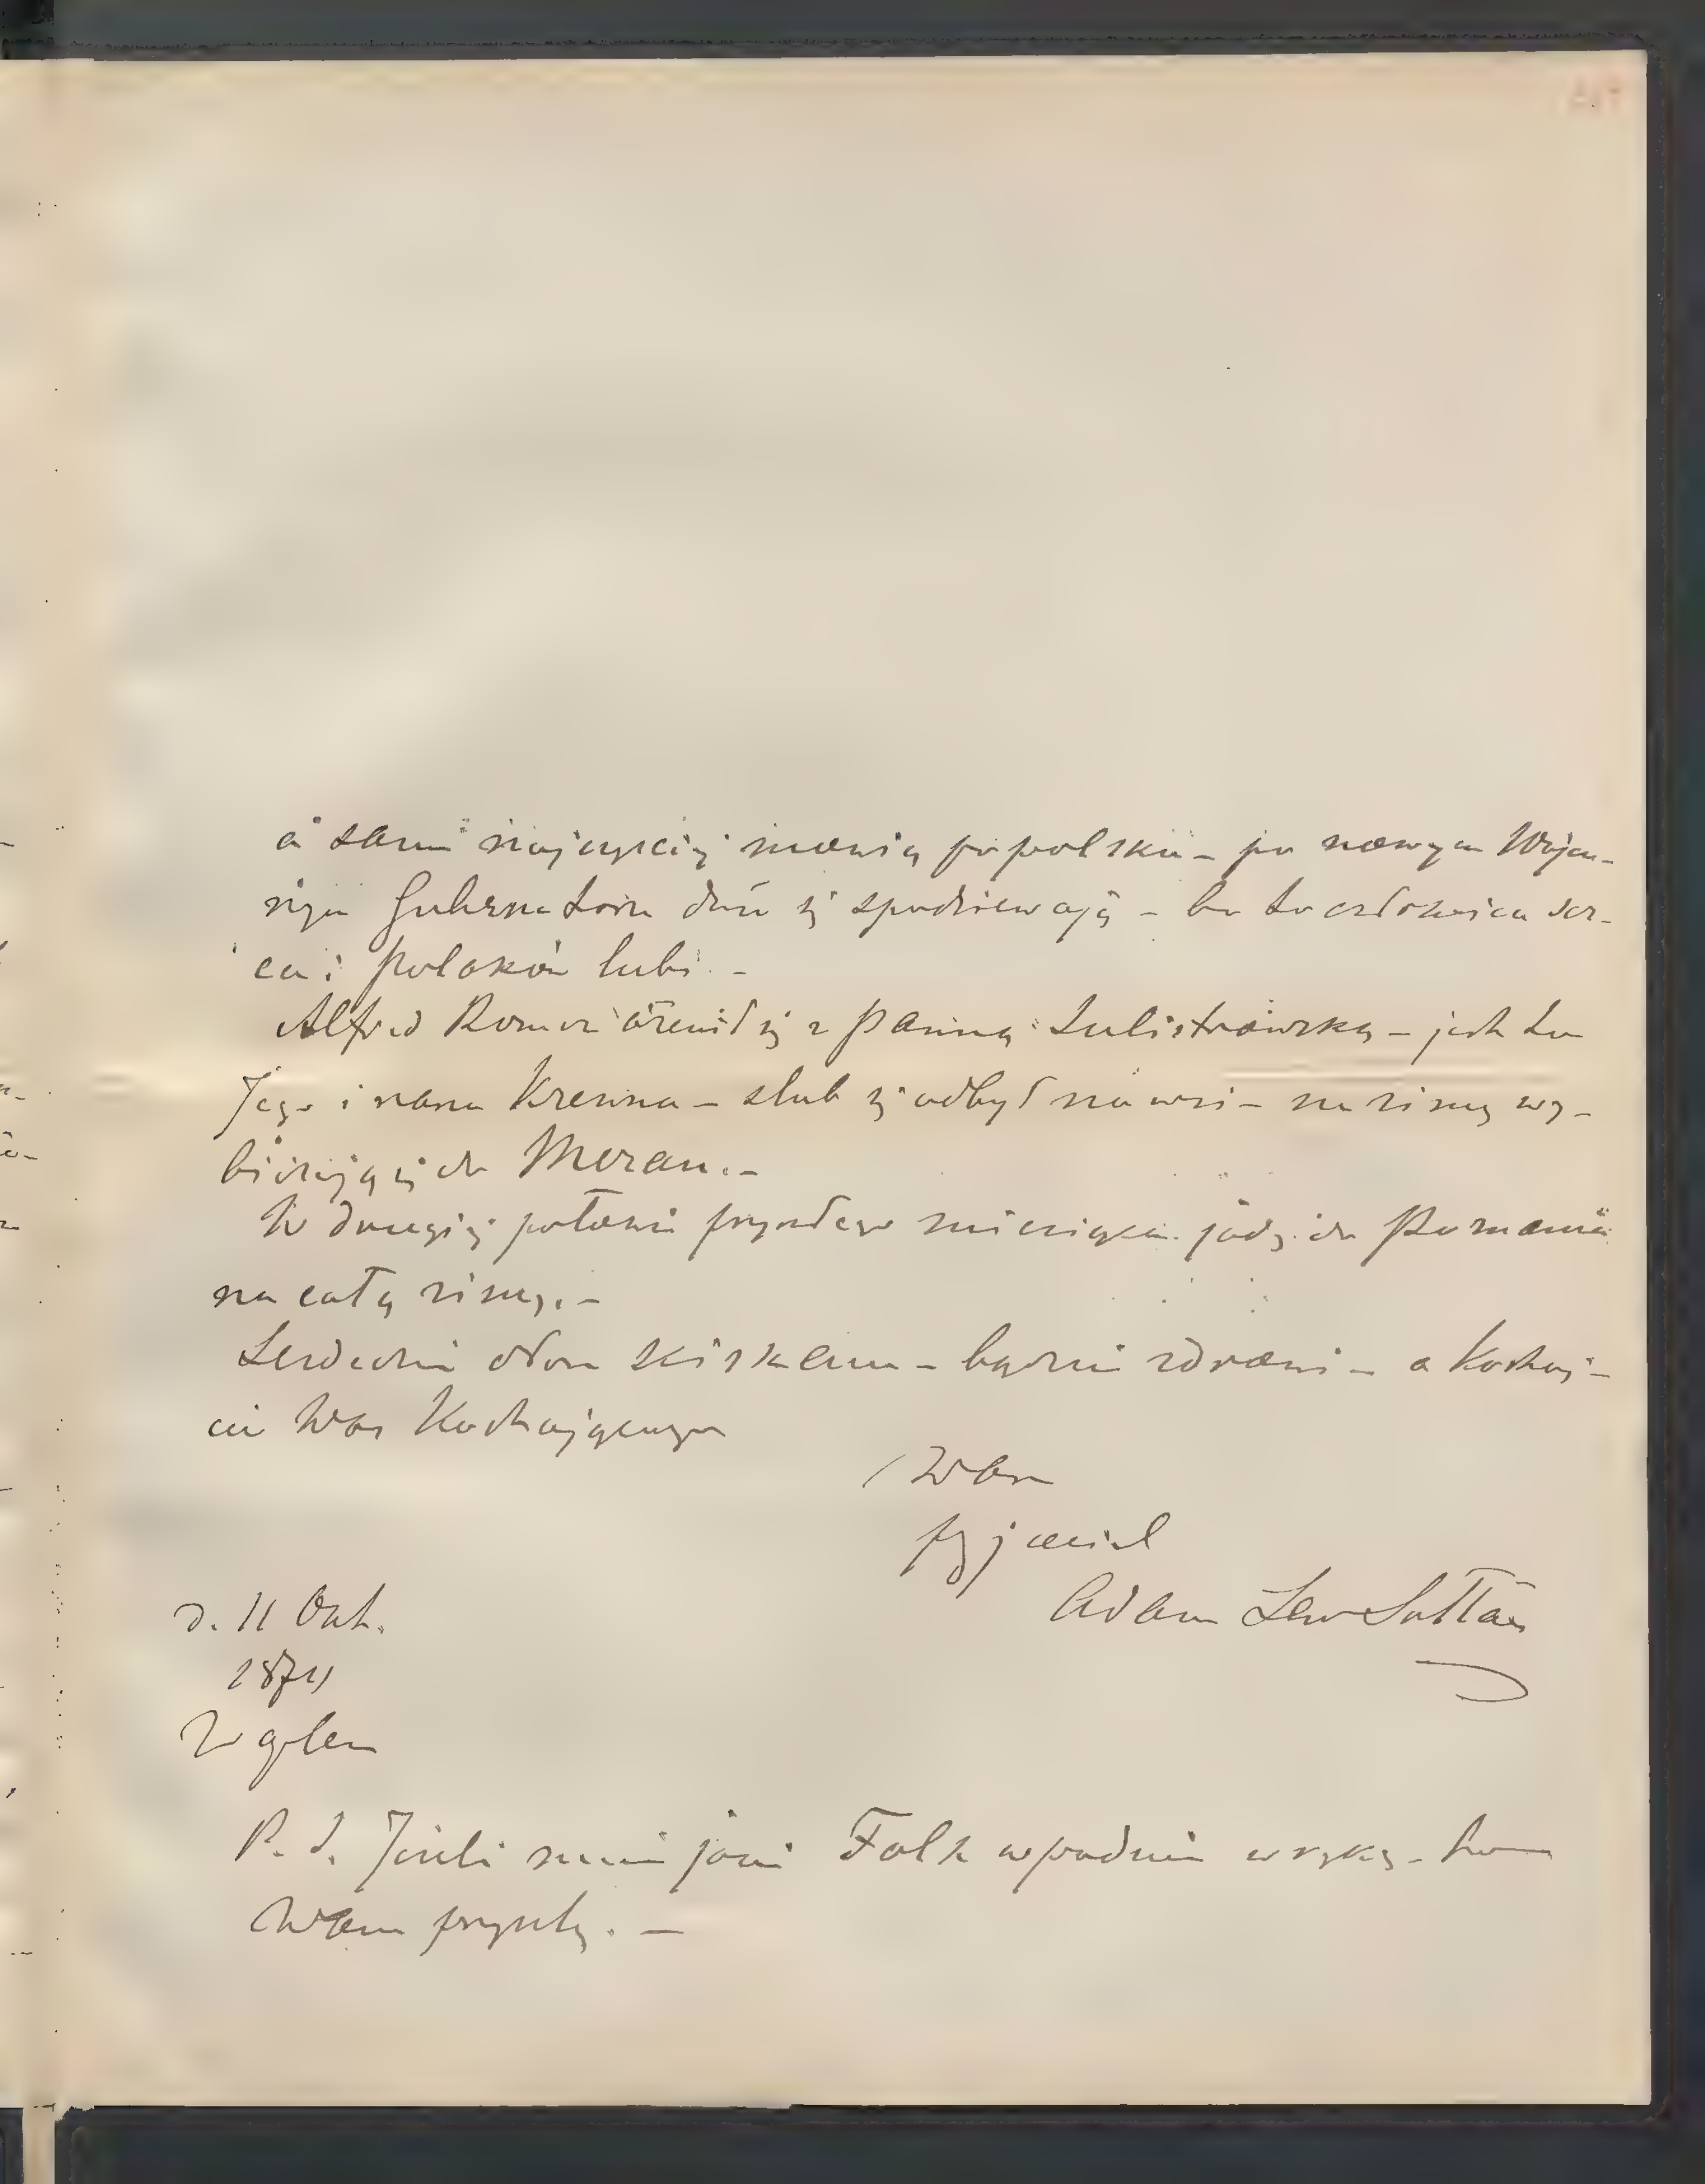 a sami najczyściéj mówią popolsku – po nowym Wojen-
nym Gubernatorze dużo się spodziewają – bo to człowiek ser-
ca i Polaków lubi. –
Alfred Romer ożenił się z Panną Sulistrowską – jest to
Jego i nasza Krewna – ślub się odbył na wsi – na zimę wy-
bierają się do Meran. –
W drugiéj połowie przyszłego miesiąca jadę do Poznania
na całą zimę. –
Serdecznie dłoń ściskam – bądźcie zdrowi – a kochaj-
cie Was Kochającego
Wam
przyjaciel
Adam Lew Sołtan
d. 11 Okt.
1874
P. S. Jeżeli mi jaki Falk wpadnie w rękę – to
Wam przyszlę. –